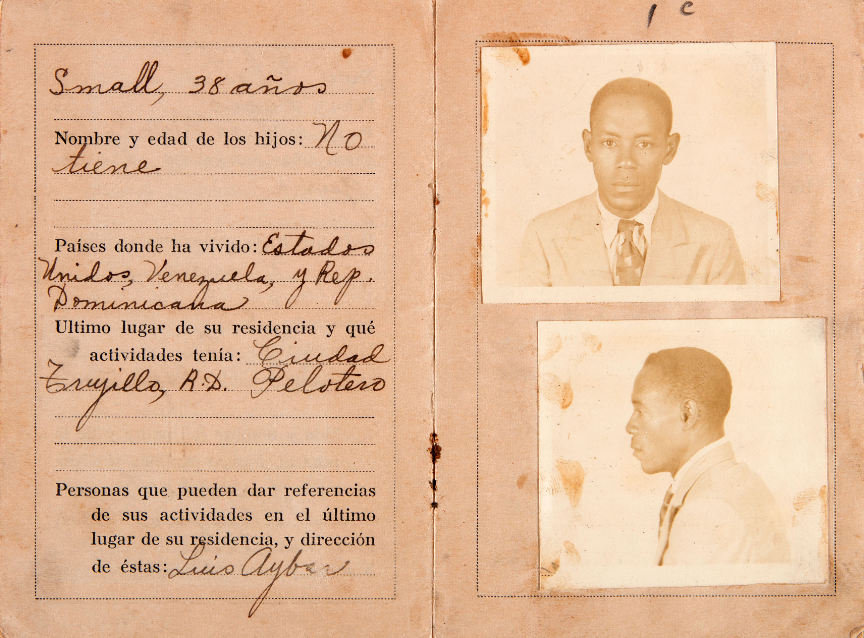 Small, 38 años
Nombre y edad de los hijos: No
tiene
Países donde ha vivido: Estados
Unidos, Venezuela, y Rep.
Dominicana
Ultimo lugar de su residencia y qué
actividades tenía: Ciudad
Trujillo, R.D. Pelotero
Personas que pueden dar referencias
de sus actividades en el último
lugar de su residencia, y dirección
de éstas: Luis Aybar